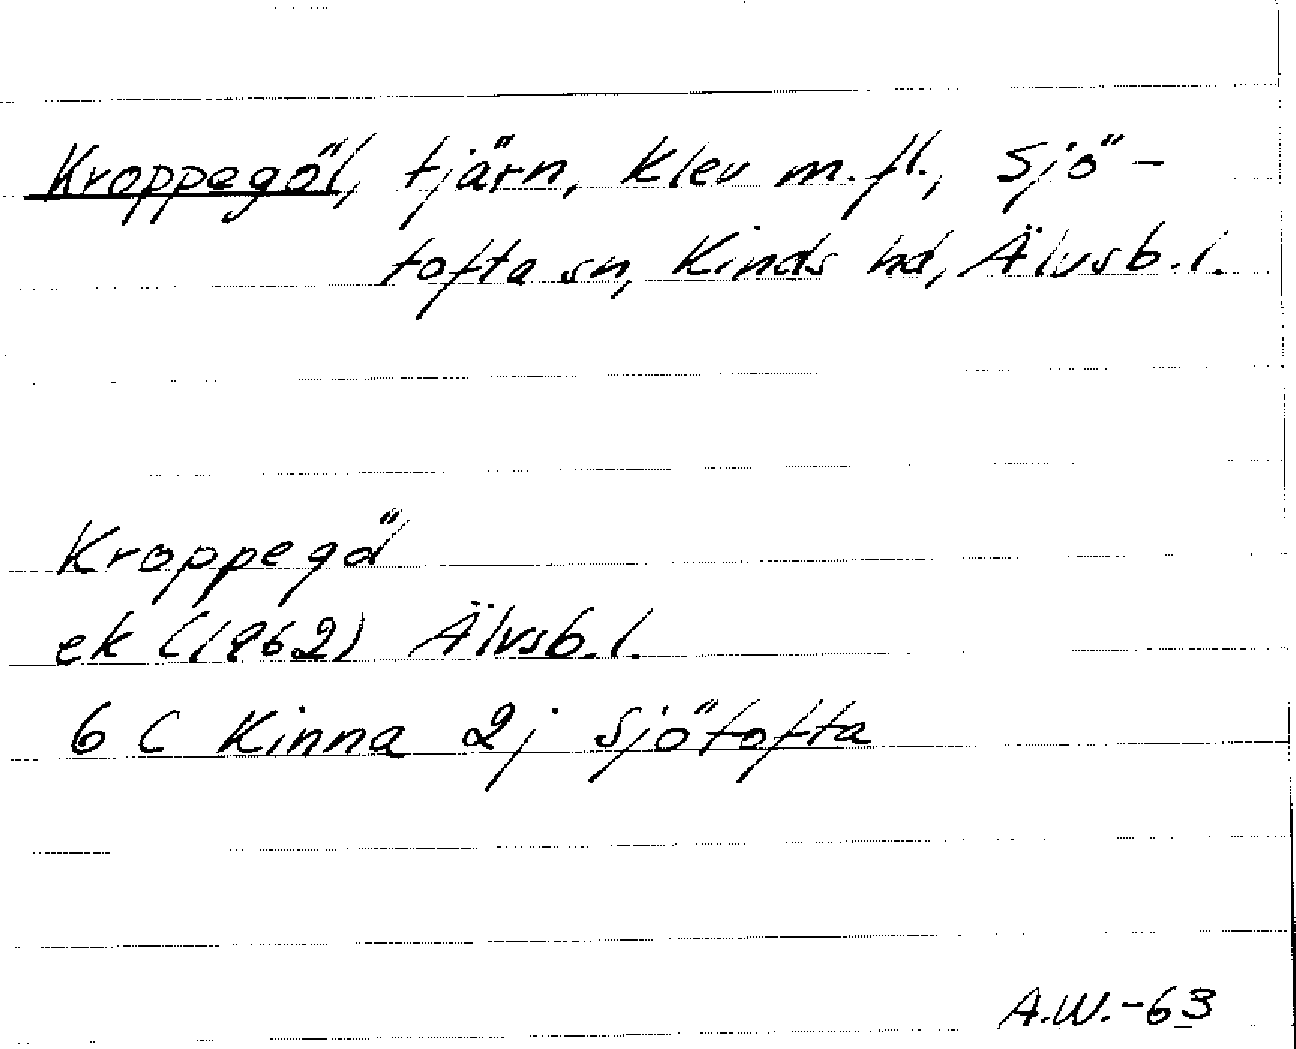 Kroppegöl, tjärn, Klev m.fl., Sjö-
tofta sn, Kinds hd, Älvsb.l.
Kroppegöl
ek (1962) Älvsb.l.
6 C Kinna 2j Sjötofta
A.W.-63